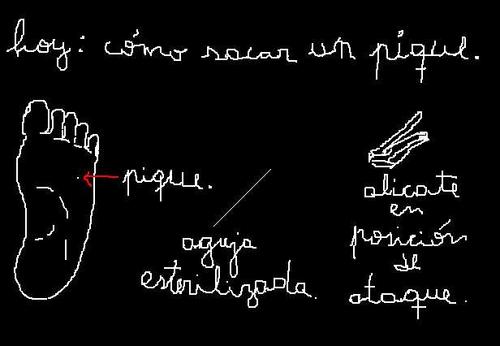 hoy: cómo sacar un pique.
pique.
aguja
esterilizada.
alicate
en
posición
de
ataque.